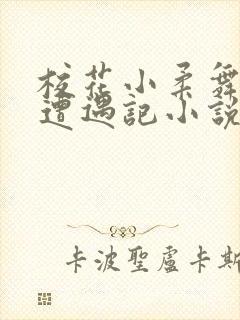 校花小柔舞
遭遇記小説
卡波聖盧卡斯